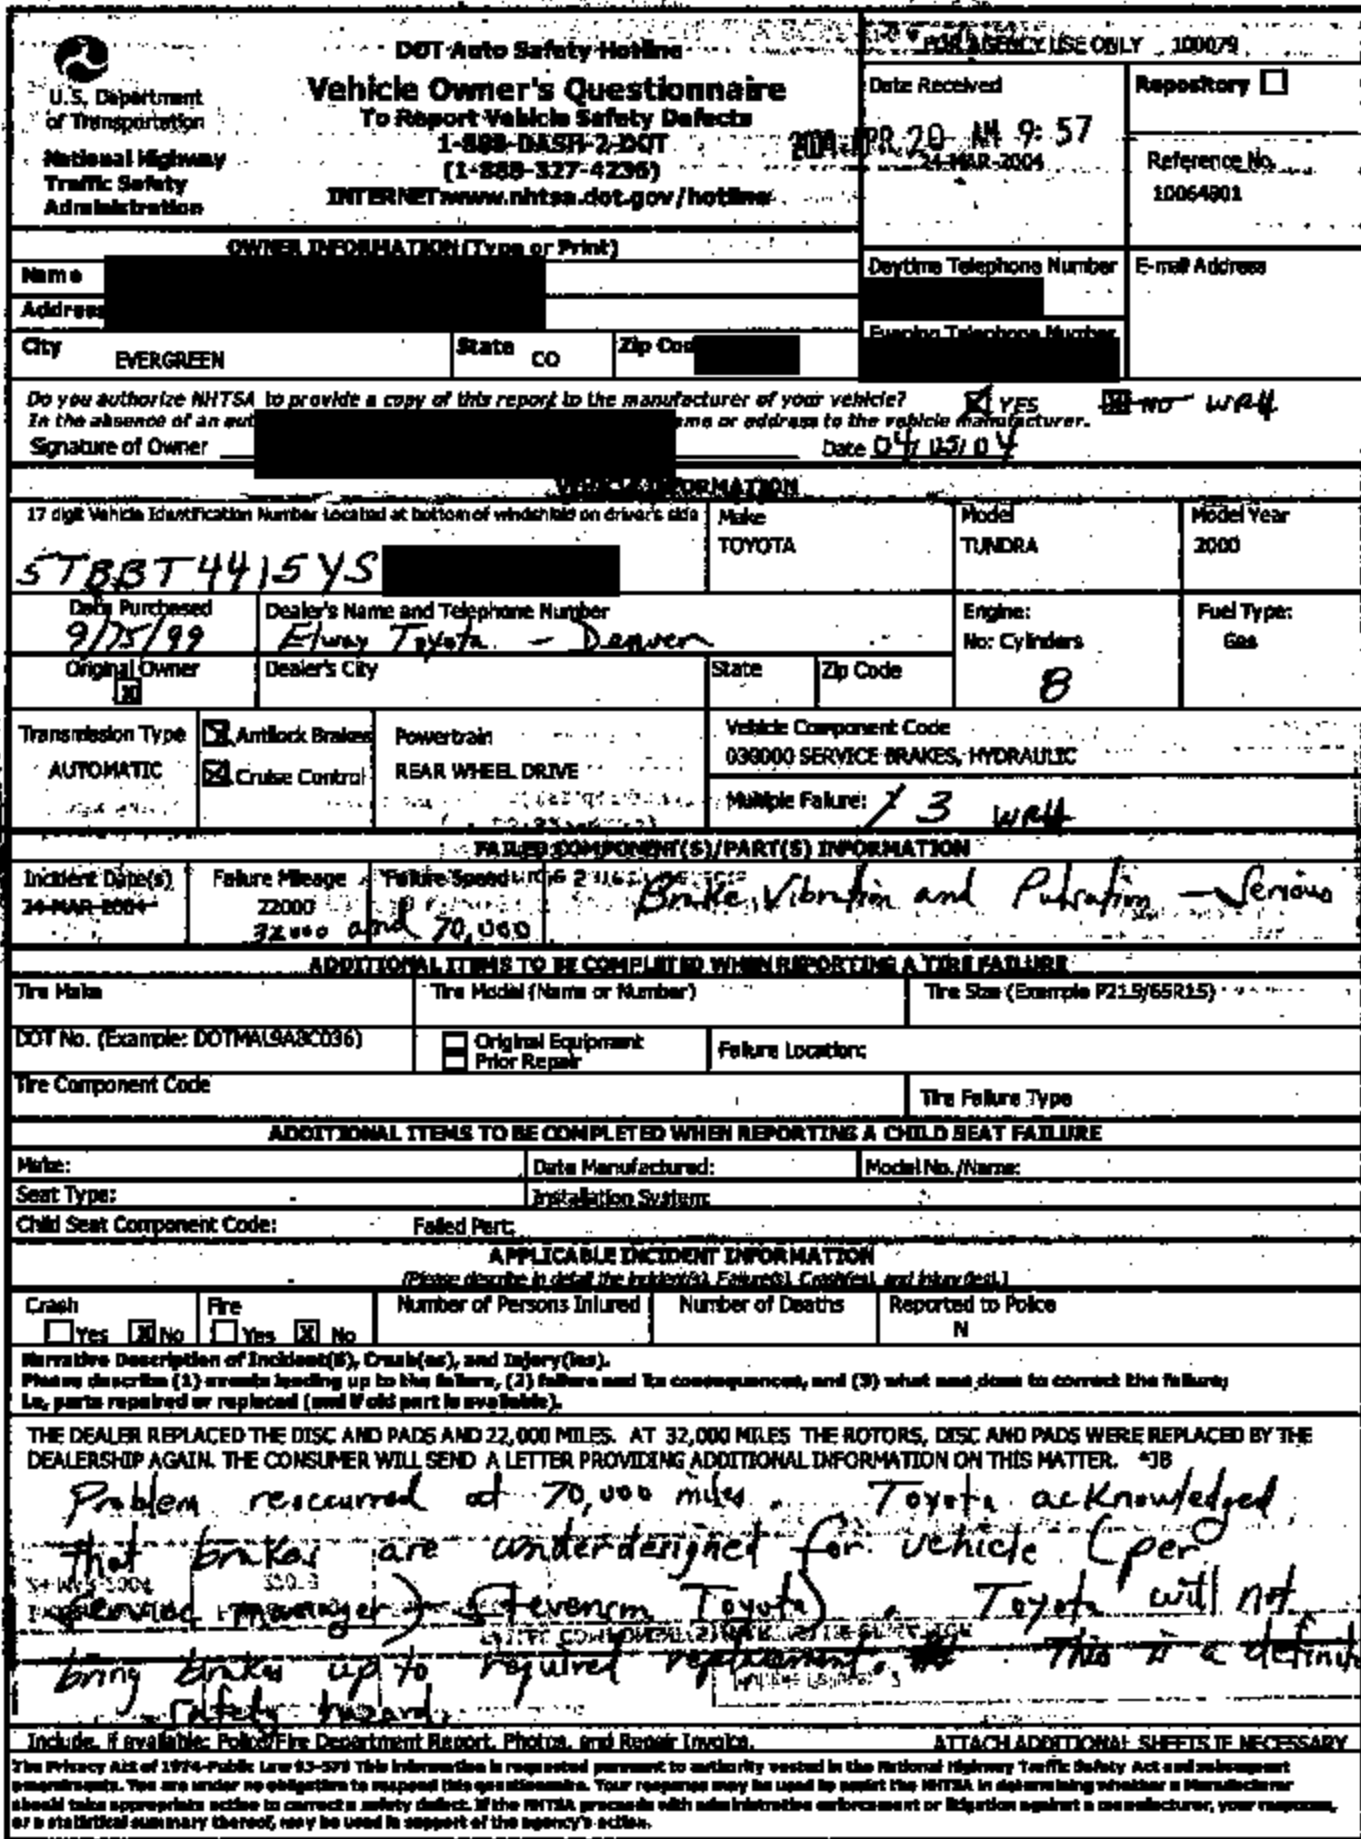 DOT Auto Safety Hotline
FOR AGENCY USE ONLY 100079
U.S. Department
of Transportation
National Highway
Traffic Safety
Administration
Vehicle Owner's Questionnaire
To Report Vehicle Safety Defects
1-888-DASH-2-DOT
(1-888-327-4236)
INTERNET:www.nhtsa.dot.gov/hotline
Date Received
20 AM 9:57
24-MAR-2004
Repository
Reference No.
10064801
OWNER INFORMATION (Type or Print)
Name
Address
Daytime Telephone Number
E-mail Address
Evening Telephone Number
City EVERGREEN
State CO
Zip Cod
Do you authorize NHTSA to provide a copy of this report to the manufacturer of your vehicle? YES NO WRH
In the absence of an aut ame or address to the vehicle manufacturer.
Signature of Owner Date 04/05/04
VEHICLE INFORMATION
17 digit Vehicle Identification Number Located at bottom of windshield on driver's side
5TBBT4415YS
Make
TOYOTA
Model
TUNDRA
Model Year
2000
Date Purchased
9/25/99
Dealer's Name and Telephone Number
Elway Toyota - Denver
Engine:
No: Cylinders
8
Fuel Type:
Gas
Original Owner
Dealer's City
State
Zip Code
Transmission Type
AUTOMATIC
Antilock Brakes
Cruise Control
Powertrain
REAR WHEEL DRIVE
Vehicle Component Code
030000 SERVICE BRAKES, HYDRAULIC
Multiple Failure: 3 WRH
FAILED COMPONENT(S)/PART(S) INFORMATION
Incident Date(s)
24-MAR-2004
Failure Mileage
22000
32000 and 70,000
Failure Speed
Brake, Vibration and Pulsation - Serious
ADDITIONAL ITEMS TO BE COMPLETED WHEN REPORTING A TIRE FAILURE
Tire Make
Tire Model (Name or Number)
Tire Size (Example P215/65R15)
DOT No. (Example: DOTMAL9ABC036)
Original Equipment
Prior Repair
Failure Location:
Tire Component Code
Tire Failure Type
ADDITIONAL ITEMS TO BE COMPLETED WHEN REPORTING A CHILD SEAT FAILURE
Make:
Date Manufactured:
Model No./Name:
Seat Type:
Installation System:
Child Seat Component Code:
Failed Part:
APPLICABLE INCIDENT INFORMATION
(Please describe in detail the incident(s), Failure(s), Crash(es), and injury(ies).)
Crash
Yes No
Fire
Yes No
Number of Persons Injured
Number of Deaths
Reported to Police
N
Narrative Description of Incident(s), Crash(es), and Injury(ies).
Please describe (1) events leading up to the failure, (2) failure and its consequences, and (3) what was done to correct the failure;
i.e, parts repaired or replaced (and if old part is available).
THE DEALER REPLACED THE DISC AND PADS AND 22,000 MILES. AT 32,000 MILES THE ROTORS, DISC AND PADS WERE REPLACED BY THE
DEALERSHIP AGAIN. THE CONSUMER WILL SEND A LETTER PROVIDING ADDITIONAL INFORMATION ON THIS MATTER. *JB
Problem reoccurred at 70,000 miles. Toyota acknowledged
that brakes are underdesigned for vehicle (per
service manager) Stevenson Toyota). Toyota will not
bring brakes up to required replacement. This is a definite
safety hazard.
Include, if available: Police/Fire Department Report, Photos, and Repair Invoice. ATTACH ADDITIONAL SHEETS IF NECESSARY
The Privacy Act of 1974-Public Law 93-579 This information is requested pursuant to authority vested in the National Highway Traffic Safety Act and subsequent
amendments. You are under no obligation to respond this questionnaire. Your response may be used to assist the NHTSA in determining whether a Manufacturer
should take appropriate action to correct a safety defect. If the NHTSA proceeds with administrative enforcement or litigation against a manufacturer, your response,
or a statistical summary thereof, may be used in support of the agency's action.